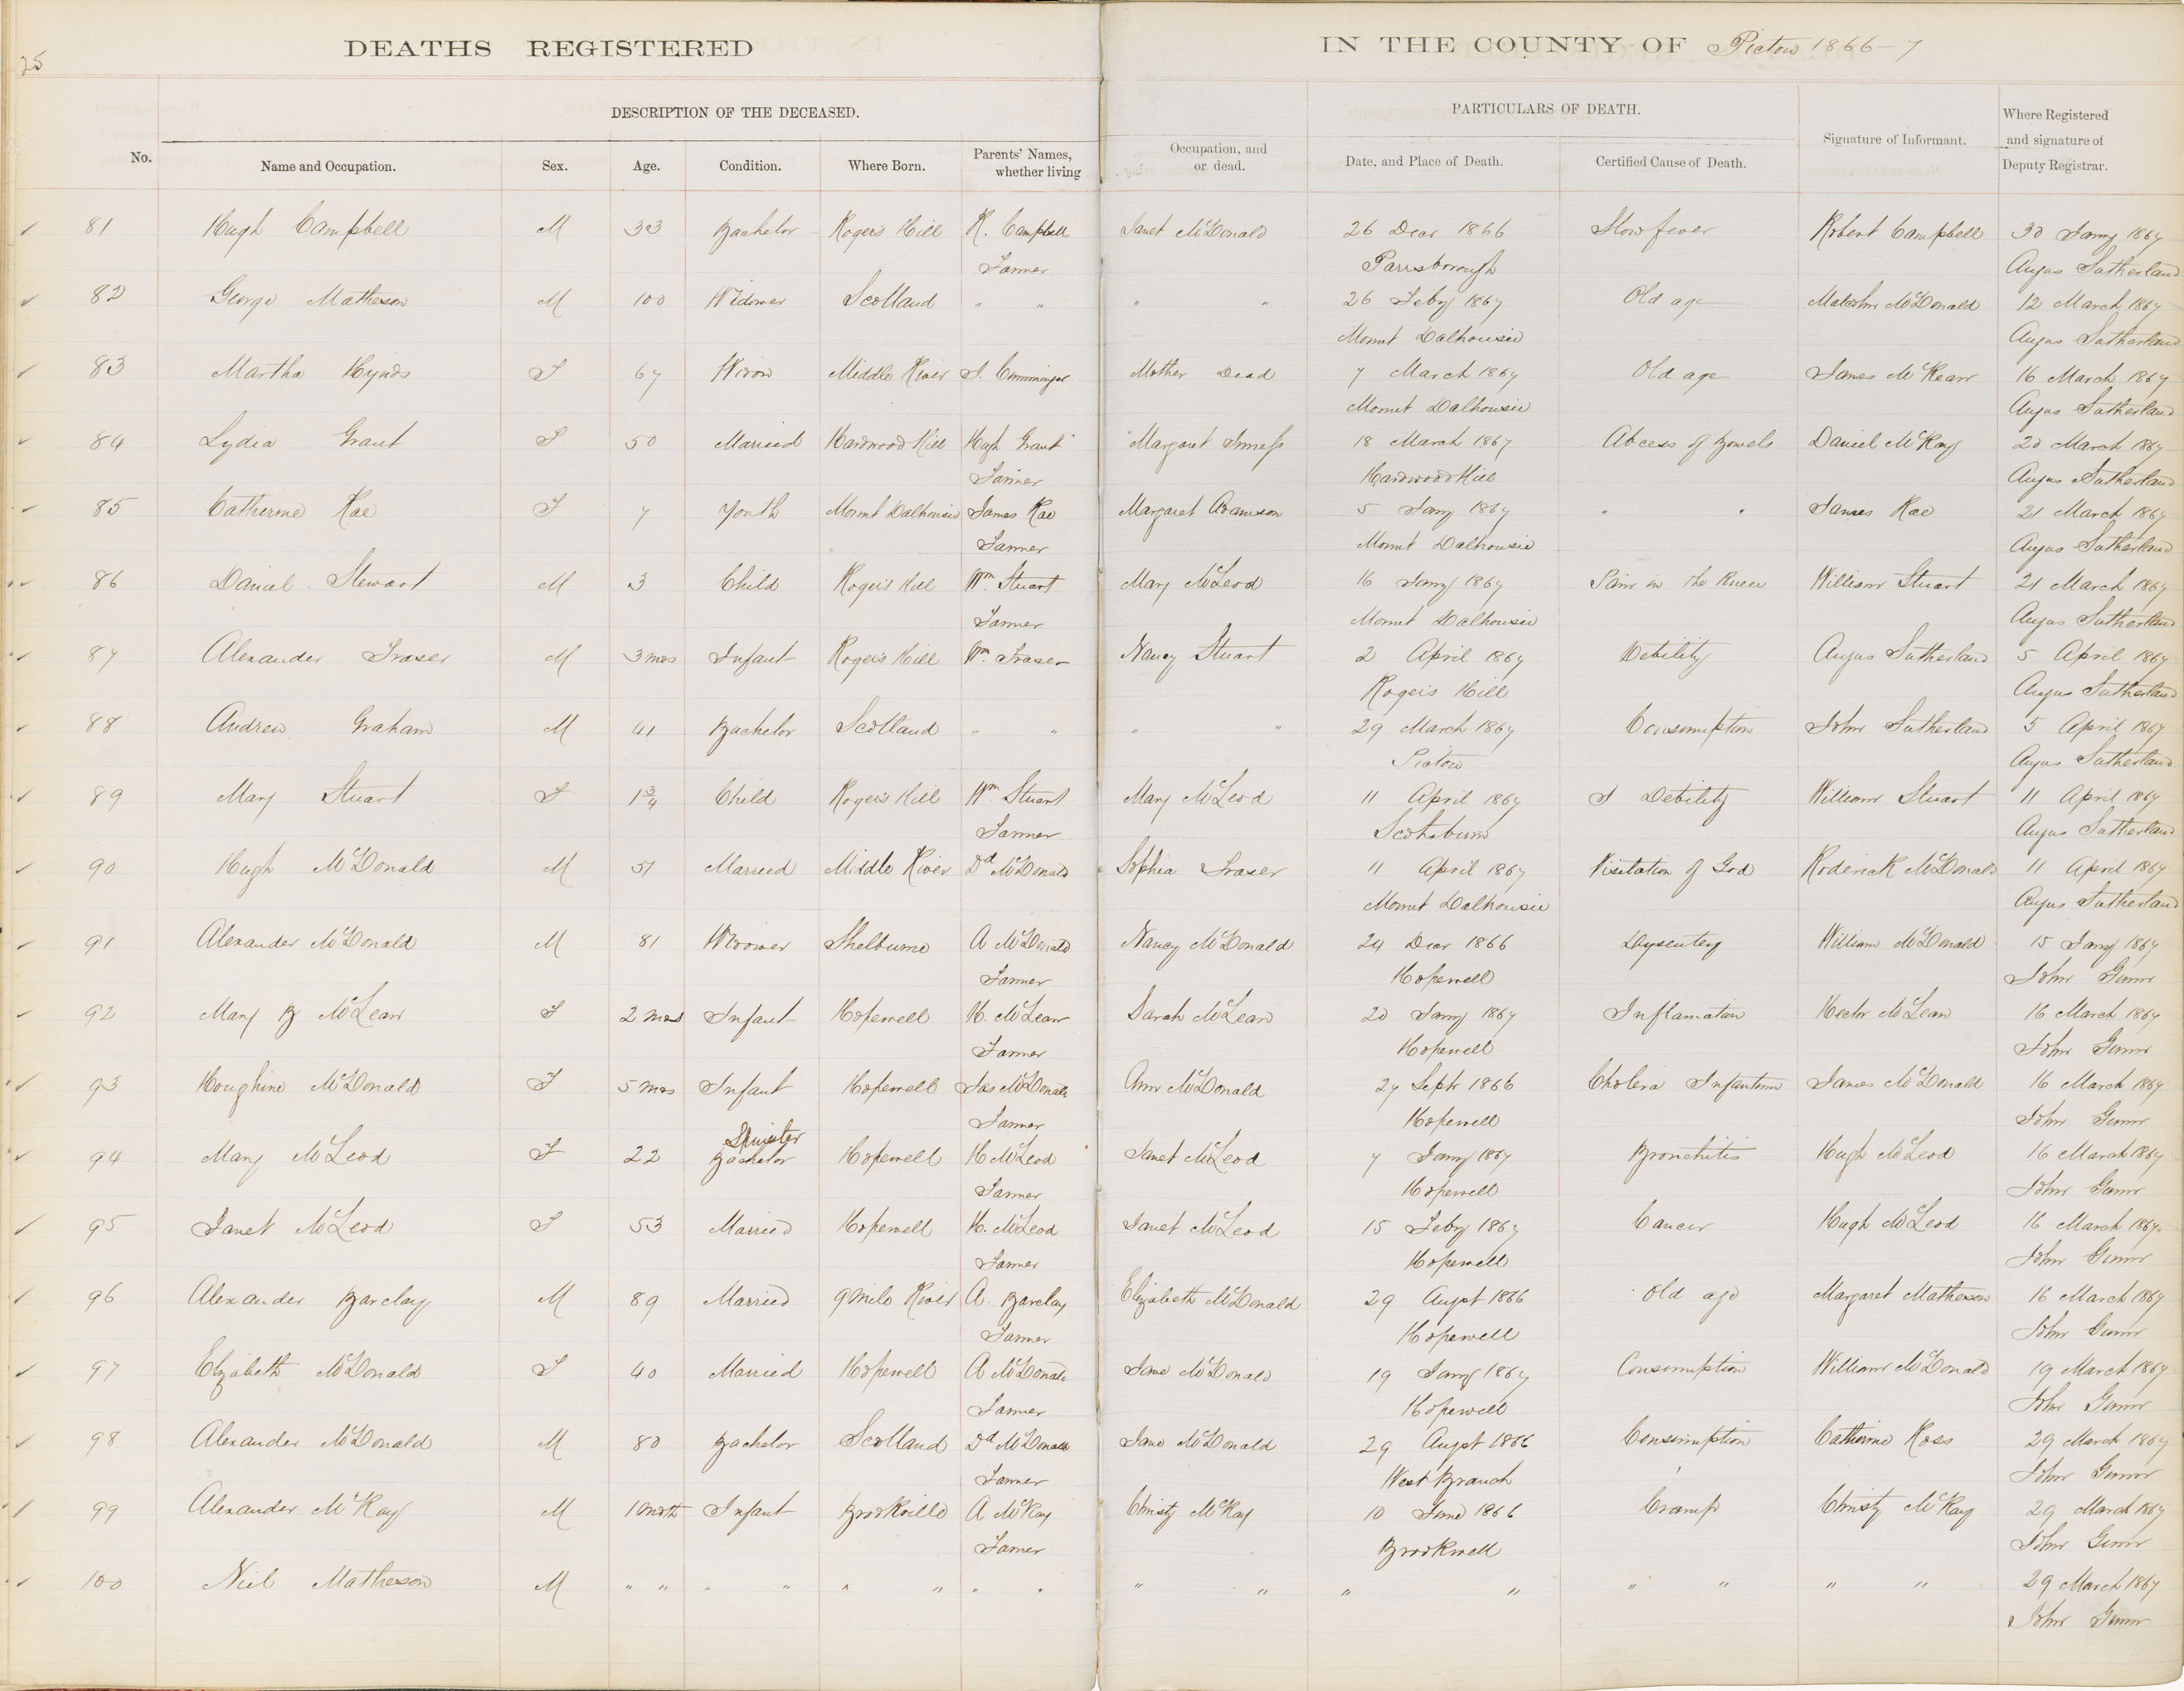 25
DEATHS REGISTERED IN THE COUNTY OF Pictou 1866-7
DESCRIPTION OF THE DECEASED. PARTICULARS OF DEATH.
No. Name and Occupation. Sex. Age. Condition. Where Born. Parents' Names, whether living Occupation, and or dead. Date, and Place of Death. Certified Cause of Death. Signature of Informant. Where Registered and signature of Deputy Registrar.
81 Hugh Campbell M 33 Bachelor Rogers Hill R. Campbell Janet McDonald 26 Decr 1866 Slow fever Robert Campbell 30 Jany 1867
Farmer Parrsborough Angus Sutherland
82 George Matheson M 100 Widower Scotland " " " " 26 Feby 1867 Old age Malcolm McDonald 12 March 1867
Mount Dalhousie Angus Sutherland
83 Martha Hynds F 67 Widow Middle River J. Cumminger Mother Dead 7 March 1867 Old age James McKean 16 March 1867
Mount Dalhousie Angus Sutherland
84 Lydia Grant F 50 Married Hardwood Hill Hugh Grant Margaret Inness 18 March 1867 Abcess of Bowels Daniel McKay 20 March 1867
Farmer Hardwood Hill Angus Sutherland
85 Catherine Rae F 7 Youth Mount Dalhousie James Rae Margaret Adamson 5 Jany 1867 " " James Rae 21 March 1867
Farmer Mount Dalhousie Angus Sutherland
86 Daniel Stewart M 3 Child Rogers Hill Wm Stuart Mary McLeod 16 Jany 1867 Pain in the Knee William Stuart 21 March 1867
Farmer Mount Dalhousie Angus Sutherland
87 Alexander Fraser M 3 mos Infant Rogers Hill Wm Fraser Nancy Stuart 2 April 1867 Debility Angus Sutherland 5 April 1867
Rogers Hill Angus Sutherland
88 Andrew Graham M 41 Bachelor Scotland " " " " 29 March 1867 Consumption John Sutherland 5 April 1867
Pictou Angus Sutherland
89 Mary Stuart F 1 3/4 Child Rogers Hill Wm Stuart Mary McLeod 11 April 1867 Debility William Stuart 11 April 1867
Farmer Scotsburn Angus Sutherland
90 Hugh McDonald M 51 Married Middle River Dd McDonald Sophia Fraser 11 April 1867 Visitation of God Roderick McDonald 11 April 1867
Mount Dalhousie Angus Sutherland
91 Alexander McDonald M 81 Widower Shelburne A McDonald Nancy McDonald 24 Decr 1866 Dysentey William McDonald 15 Jany 1867
Farmer Hopewell John Gunn
92 Mary B McLean F 2 mos Infant Hopewell H. McLean Sarah McLean 20 Jany 1867 Inflamation Hector McLean 16 March 1867
Farmer Hopewell John Gunn
93 Houghine McDonald F 5 mos Infant Hopewell Jas McDonald Ann McDonald 27 Septr 1866 Cholera Infantum James McDonald 16 March 1867
Farmer Hopewell John Gunn
Spinster
94 Mary McLeod F 22 Bachelor Hopewell H McLeod Janet McLeod 7 Jany 1867 Bronchitis Hugh McLeod 16 March 1867
Farmer Hopewell John Gunn
95 Janet McLeod F 53 Married Hopewell H. McLeod Janet McLeod 15 Feby 1867 Cancer Hugh McLeod 16 March 1867
Farmer Hopewell John Gunn
96 Alexander Barclay M 89 Married 9 Mile River A. Barclay Elizabeth McDonald 29 Augst 1866 Old age Margaret Matheson 16 March 1867
Farmer Hopewell John Gunn
97 Elizabeth McDonald F 40 Married Hopewell A McDonald Jane McDonald 19 Jany 1867 Consumption William McDonald 19 March 1867
Farmer Hopewell John Gunn
98 Alexander McDonald M 80 Bachelor Scotland Dd McDonald Jane McDonald 29 Augst 1866 Consumption Catherine Ross 29 March 1867
Farmer West Branch John Gunn
99 Alexander McKay M 1 month Infant Brookville A McKay Christy McKay 10 June 1866 Cramp Christy McKay 29 March 1867
Farmer Brookwell John Gunn
100 Niel Matheson M " " " " " " " " " " " " " " " " 29 March 1867
John Gunn